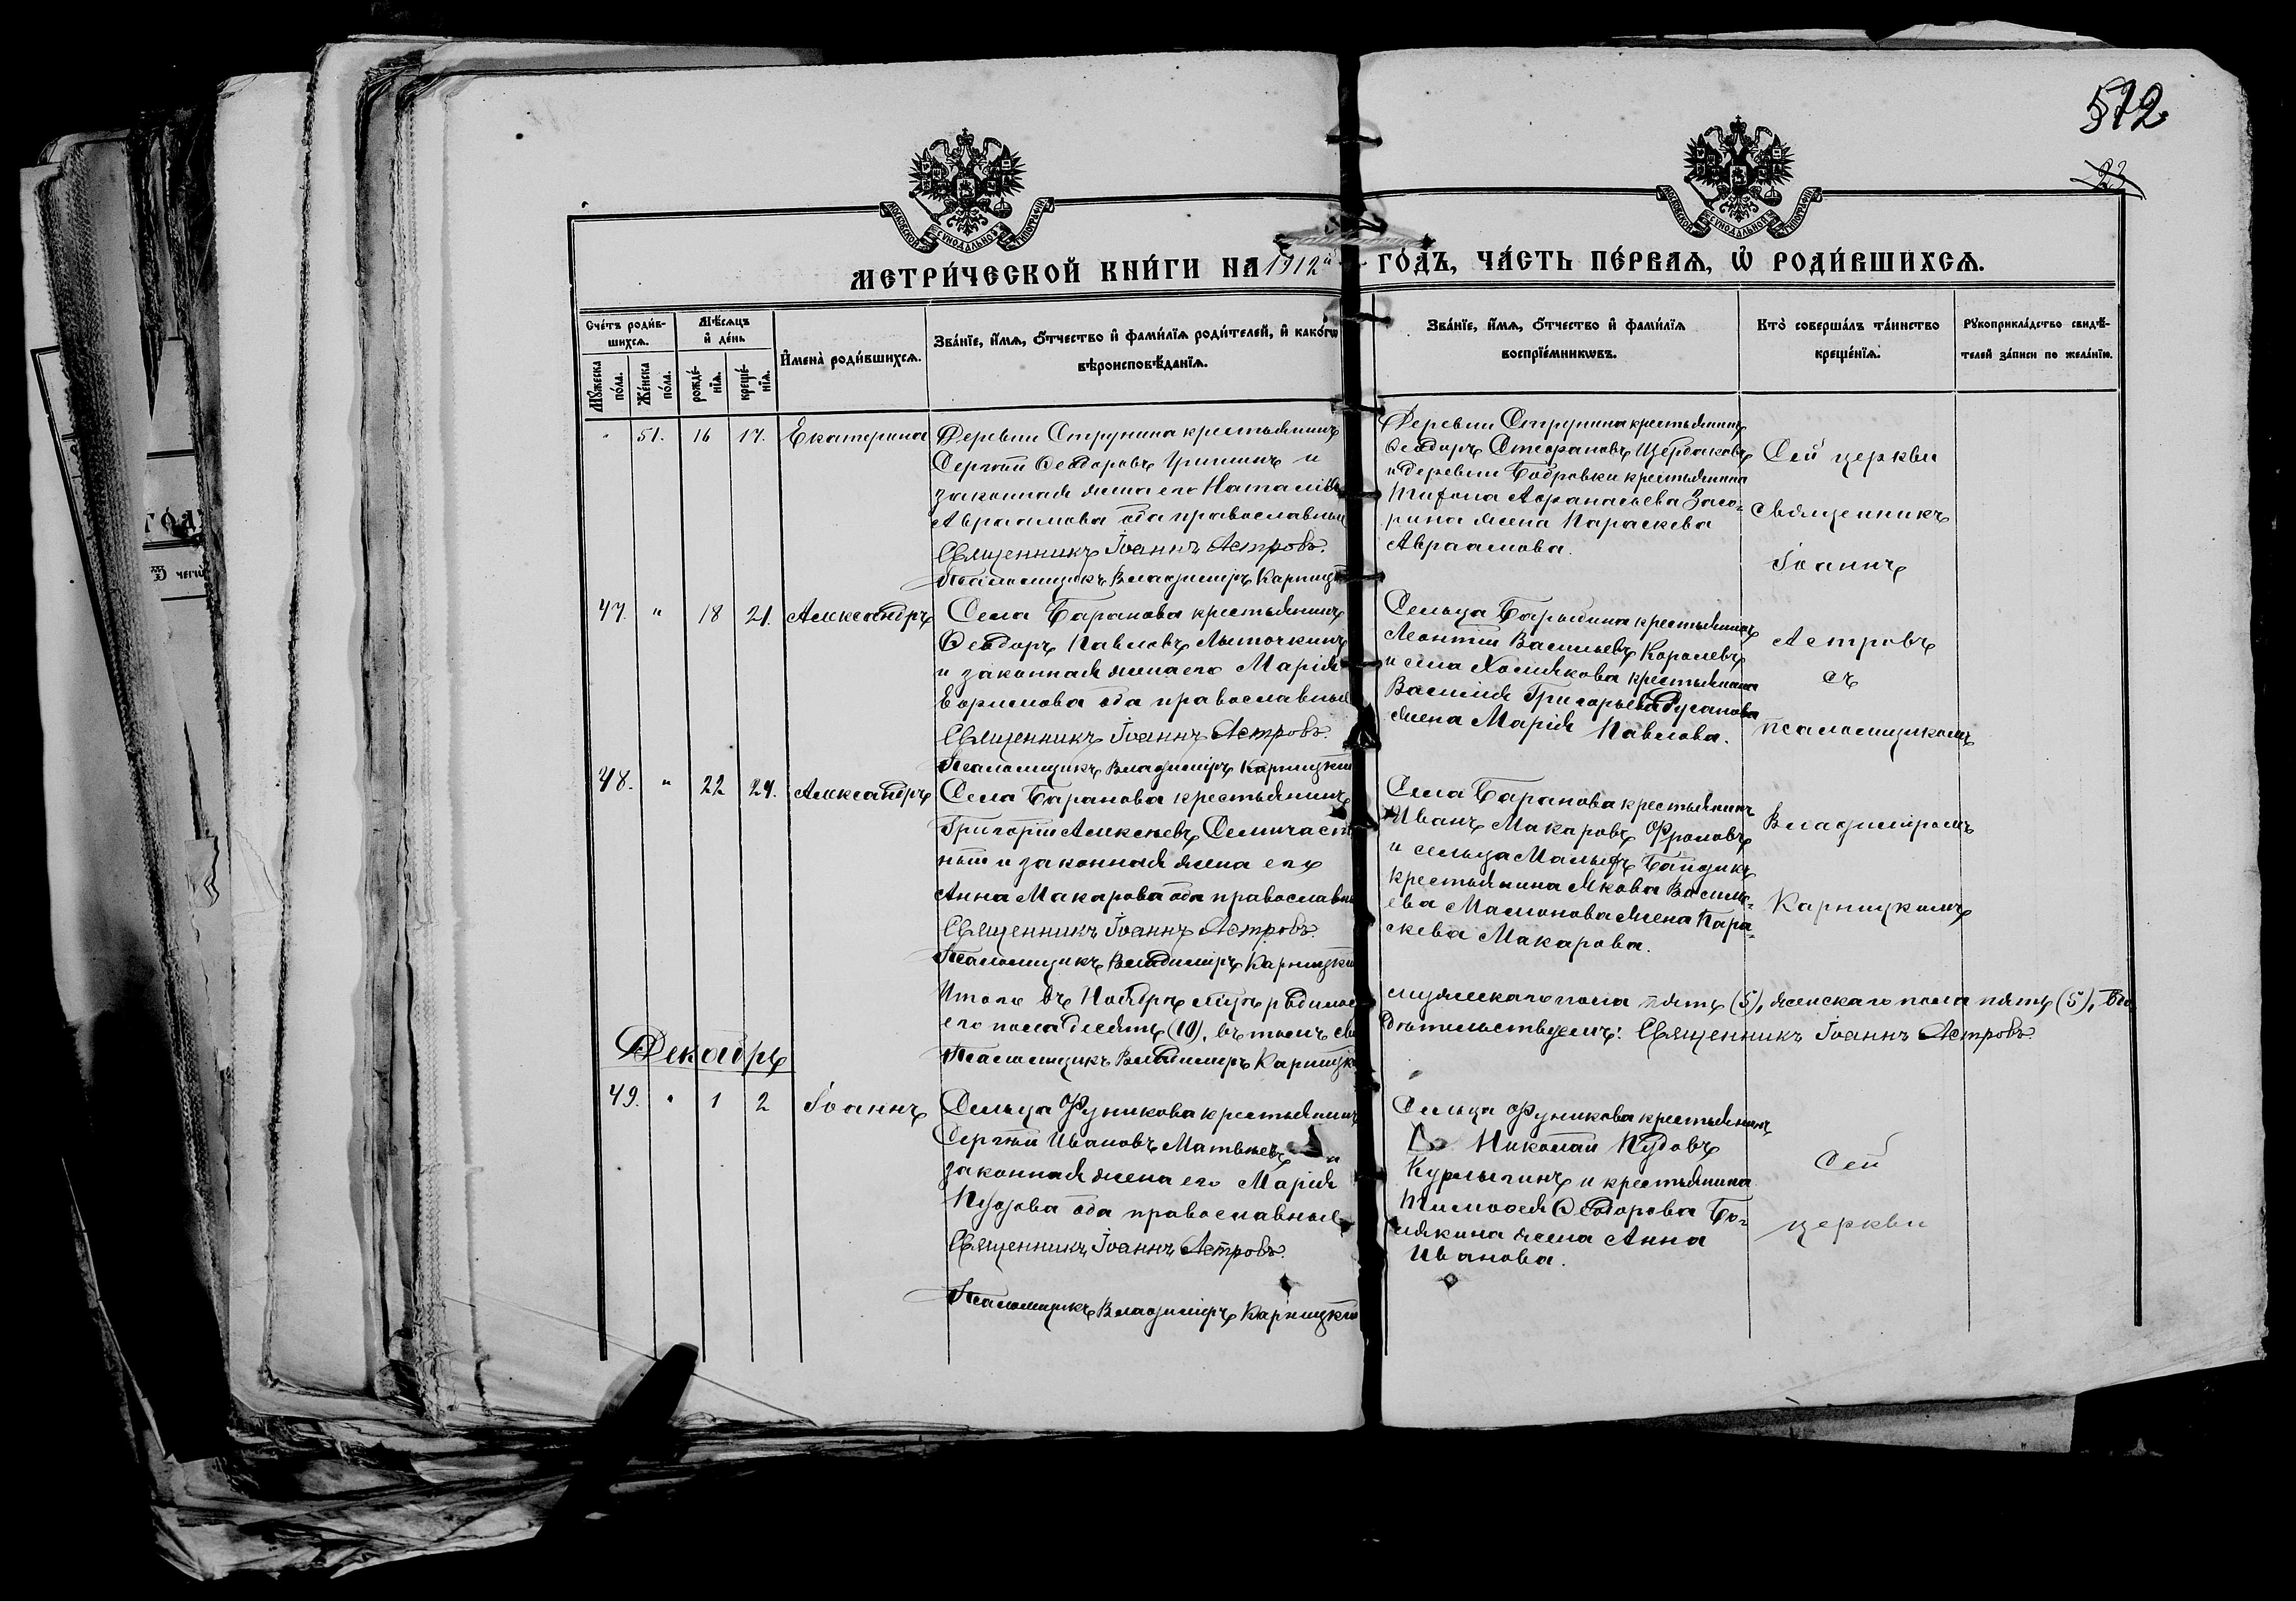 572
23
МОСКОВСКОЙ СѴНОДАЛЬНОЙ ТИПОГРАФІИ
МОСКОВСКОЙ СѴНОДАЛЬНОЙ ТИПОГРАФІИ
МЕТРИ́ЧЕСКОЙ КНИ́ГИ НА 1912й ГО́ДЪ, ЧА́СТЬ ПЕ́РВАѦ, Ѡ҆ РОДИ́ВШИХСѦ.
Сче́тъ роди́в-
шихсѧ.
Мꙋ́жеска
по́ла.
Же́нска
по́ла.
Мѣ́сѧцъ
и҆ де́нь
рожде́-
нїѧ.
креще́-
нїѧ.
И҆мена̀ роди́вшихсѧ.
Зва́нїе, и҆́мѧ, ѻ҆́тчество и҆ фами́лїѧ роди́телей, и҆ како́гѡ
вѣроисповѣ́данїѧ.
Зва́нїе, и҆́мѧ, ѻ҆́тчество и҆ фами́лїѧ
воспрїе́мникѡвъ.
Кто̀ соверша́лъ та́инство
креще́нїѧ.
Рꙋкоприкла́дство свидѣ́-
телей за́писи по жела́нїю.
" 51. 16 17. Екатерина
Деревни Струнина крестьянинъ
Сергѣй Ѳеодоровъ Гришинъ и
законная жена его Наталія
Авраамова оба православные
Священникъ Іоаннъ Астровъ.
Псаломщикъ Владимиръ Карницкій
Деревни Струнина крестьянинъ
Ѳеодоръ Стефановъ Щербаковъ
и деревни Бобровки крестьянина
Тифона Афанасьева Заго-
рина жена Параскева
Авраамова.
Сей церкви
священникъ
Іоаннъ
47. " 18 21. Александръ
Села Баранова крестьянинъ
Ѳеодоръ Павловъ Лыточкинъ
и законная жена его Марія
Ефимова оба православные
Священникъ Іоаннъ Астровъ.
Псаломщикъ Владимиръ Карницкій
Сельца Барыбина крестьянинъ
Леонтій Васильевъ Королевъ
и села Хомякова крестьянина
Василія Григорьева
жена Марія Павлова.
Астровъ
съ
псаломщикомъ
48. " 22 24. Александръ
Села Баранова крестьянинъ
Григорій Алексѣевъ Семичаст
ный и законная жена его
Анна Макарова оба православные
Священникъ Іоаннъ Астровъ.
Псаломщикъ Владимиръ Карницкій
Села Баранова крестьянинъ
Иванъ Макаровъ Фроловъ
и сельца Малыхъ
крестьянина Якова Василь-
ева Мамонова жена Пара-
скева Макарова.
Владимиромъ
Карницкимъ
Итого въ Ноябрѣ мцѣ родилось
мужескаго пола пять (5), женскаго пола пять (5), обо-
его пола десять (10), въ томъ сви
дѣтельствуемъ: Священникъ Іоаннъ Астровъ.
Псаломщикъ Владимиръ Карницкій
Декабрь
49. " 1 2 Іоаннъ
Сельца Фуникова крестьянинъ
Сергѣй Ивановъ Матвѣевъ и
законная жена его Марія
Пудова оба православные
Священникъ Іоаннъ Астровъ.
Псаломщикъ Владимиръ Карницкій
Сельца Фуникова крестьянинъ
Николай Пудовъ
Курлыгинъ и крестьянина
Тимоѳея Ѳеодорова Бо-
жена Анна
Иванова.
Сей
церкви